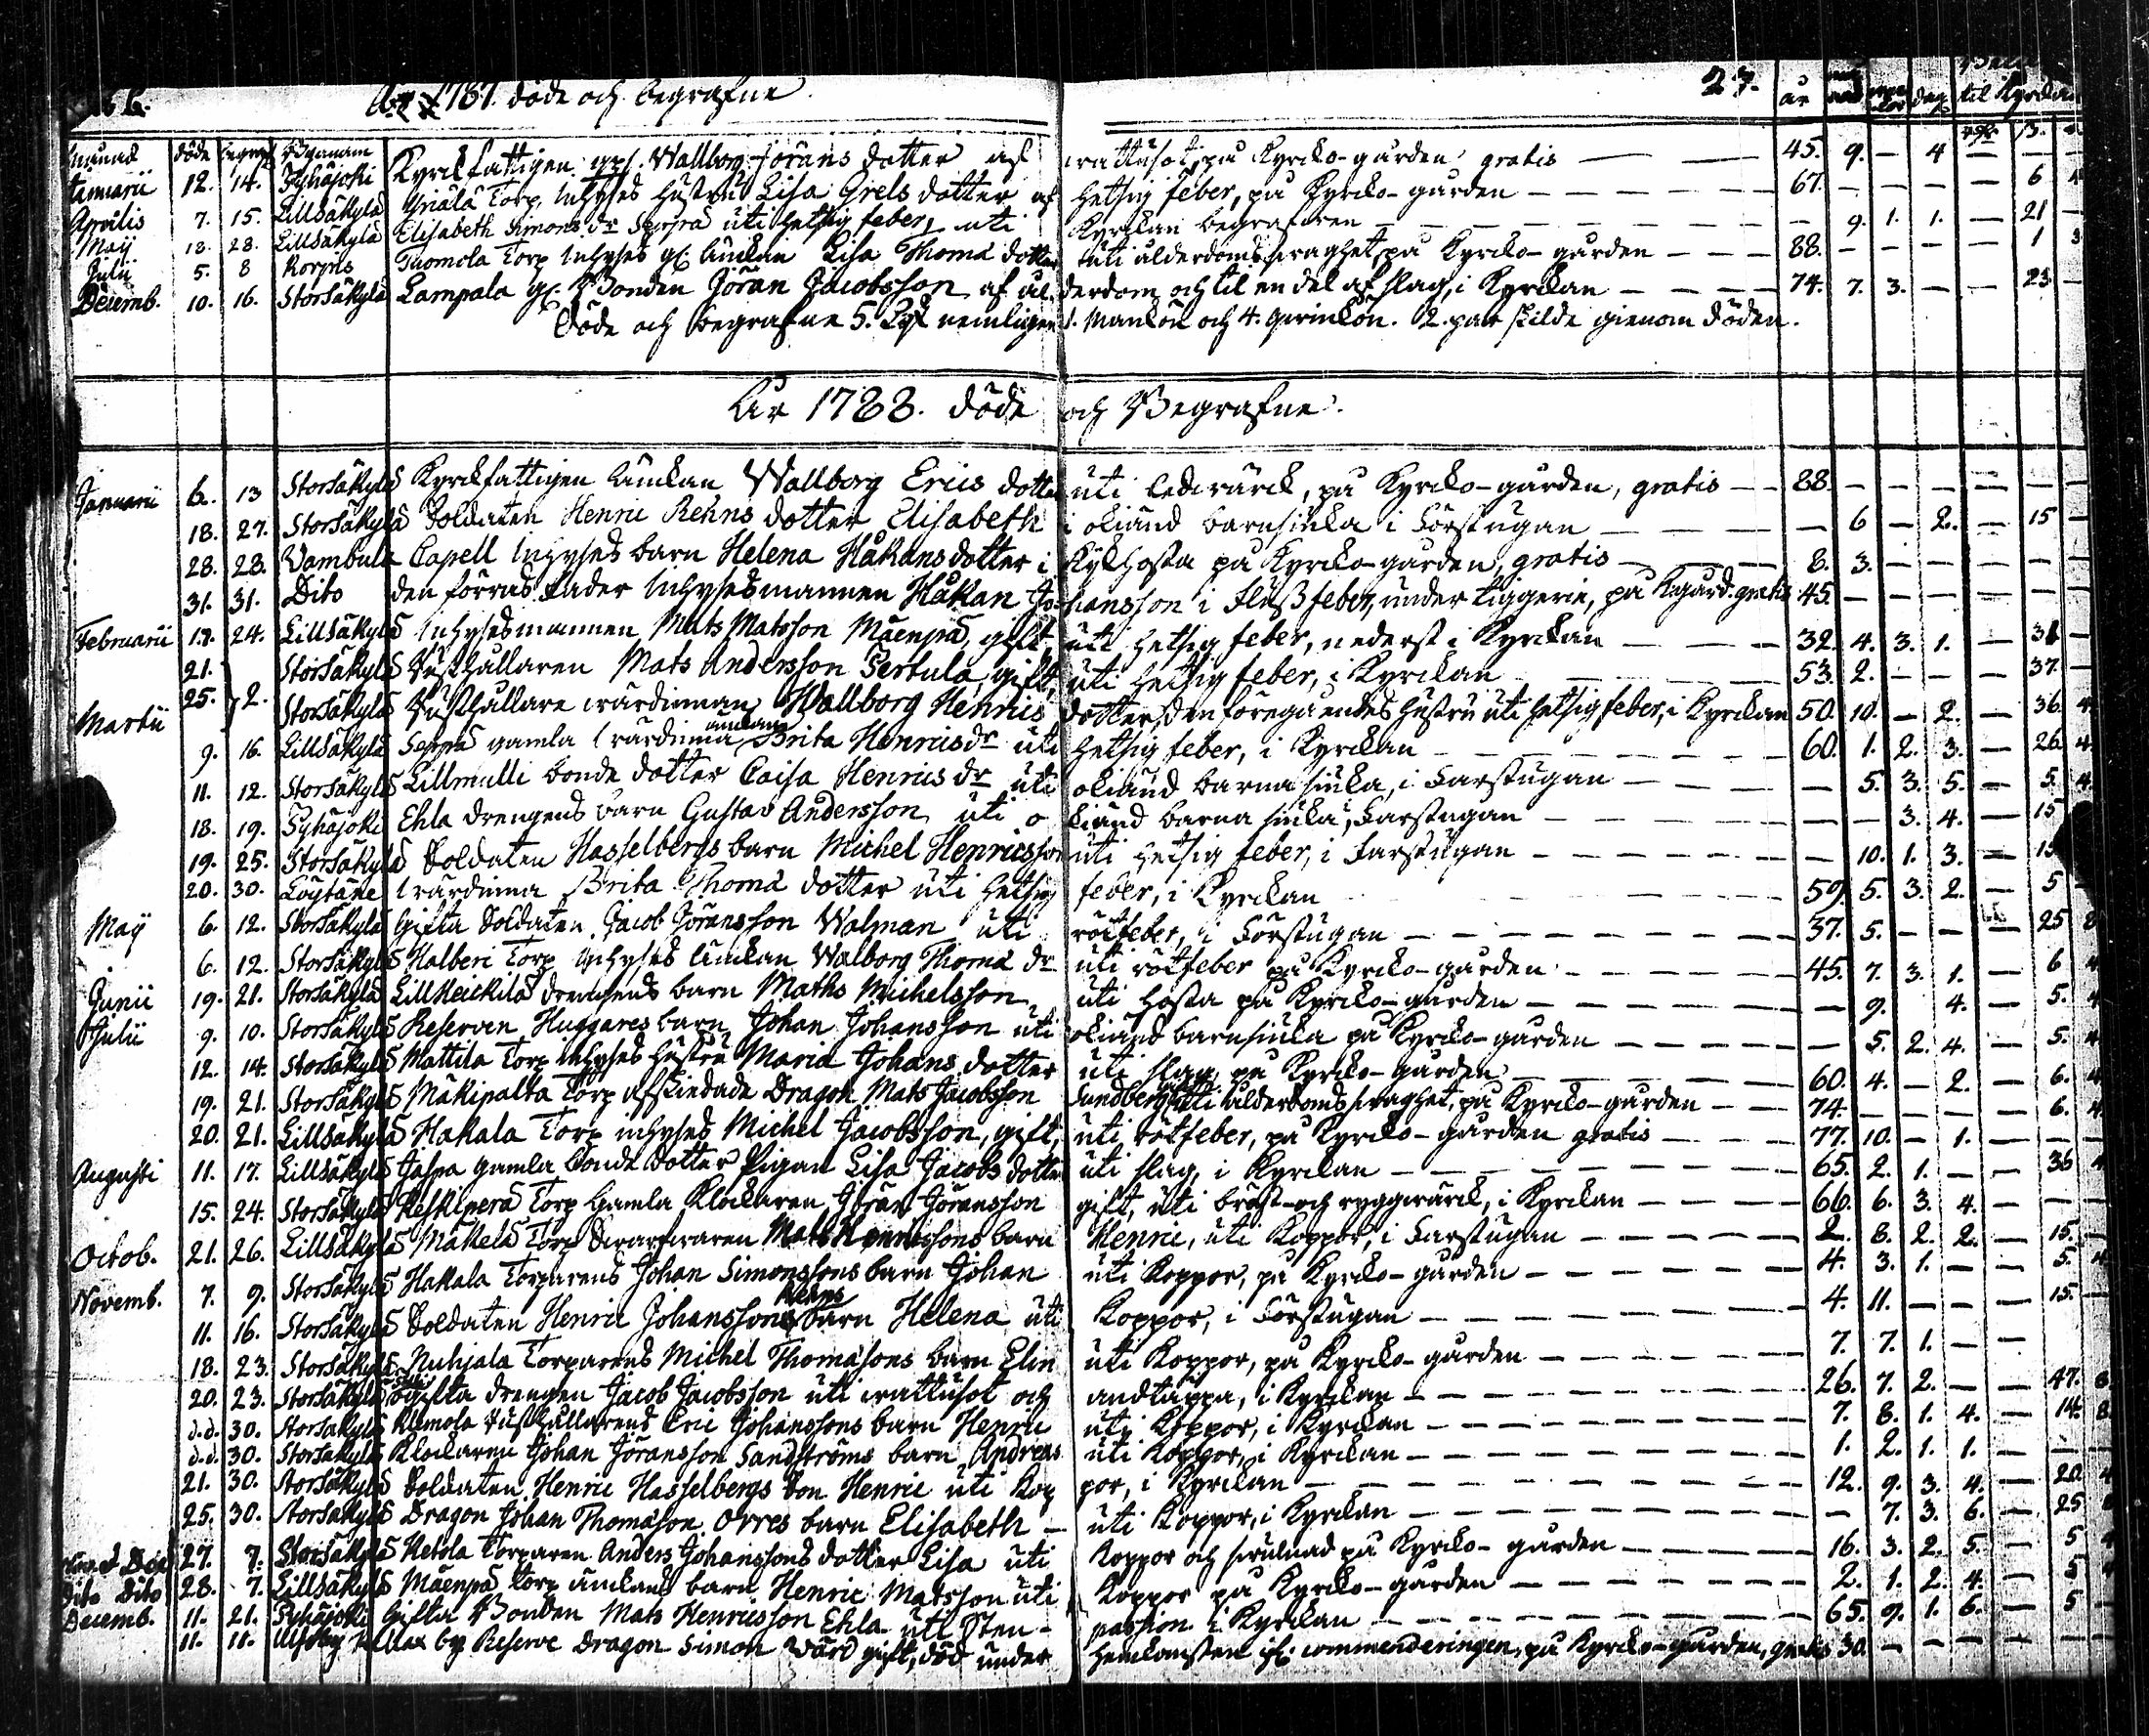 År 1787. döde och begrafne 27.
månad döde begrafn Bynam år dag til Kyrckan
Januarii 12. 14. Pyhäjoki Kyrckfattigen Wallborg Jörans dotter af wattusot, på Kyrcko-gården gratis — 45. 9. — 4 — — —
Aprilis 7. 15. Lillsäkylä Torp Inhyses Hustru Lisa Grels dotter af hetsig feber, på Kyrcko-gården — 67. — — — — 6 4
Maij 18. 28. Lillsäkylä Elisabeth Simons dr Seppä uti hetsig feber, uti Kyrckan begrafven — — 9. 1. 1. — 21 —
Julii 5. 8 Korpis Tuomola Torp Inhyses Enckan Lisa Thomä dotter uti ålderdoms swaghet på Kyrcko-gården — 88. — — — — 1 3
Decemb. 10. 16. Storsäkylä Lampala Bonden Jöran Jacobsson af ålderdom och til en del af slag, i Kyrckan — 74. 7. 3. — — 23 —
Döde och begrafne 5. nemligen 1. Mankön och 4. qwinkön. 2. par skilde gienom döden.
År 1788. döde och Begrafne.
Januarii 6. 13 Storsäkylä Kyrckfattigen Enckan Wallborg Erics dotter uti ledewärck, på Kyrcko-gården, gratis — 88. — — — — — —
18. 27. Storsäkylä Soldaten Henric Rehns dotter Elisabeth i okiänd barnsiuka i Förstugan — — 6 — 2. — 15 —
28. 28. Wambula Capell Inhyses barn Helena Håkans dotter i Kikhosta på Kyrcko-gården, gratis — 8. 3. — — — — —
31. 31. Dito den förras Fader Inhysesmannen Håkan Johansson i Flußfeber, under tiggerie, på Kgård. gratis 45. — — — — — —
Februarii 17. 24. Lillsäkylä Inhysesmannen Mats Matsson Mäenpä, gift, uti hetsig feber, nederst i Kyrckan — 32. 4. 3. 1. — 31 —
21. Storsäkylä Rusthållaren Mats Andersson Perkula, gift, uti hetsig feber, i Kyrckan — 53. 2. — — — 37 —
Martii 25. 2. Storsäkylä Rusthållare wärdinnan Wallborg Henrics dotter den föregåendes hustru uti hetsig feber, i Kyrckan 50. 10. — 2. — 36. 4.
9. 16. Lillsäkylä Seppä gamla wärdinna enckan Brita Henricsdr uti hetsig feber, i Kyrckan — 60. 1. 2. 3. — 26. 4.
11. 12. Storsäkylä Lillmulli bonde dotter Caisa Henrics dr uti okiänd barnasiuka, i Farstugan — — 5. 3. 5. — 5. 4.
18. 19. Pyhäjoki Ehla drengens barn Gustav Andersson uti okiänd barna siuka, i Farstugan — — — 3. 4. — 15
19. 25. Storsäkylä Soldaten Hasselbergs barn Michel Henricsson uti hetsig feber, i Farstugan — — 10. 1. 3. — 15
20. 30. Löytäne wärdinna Brita Thomä dotter uti hetsig feber, i Kyrckan 59. 5. 3. 2. — 5
Maij 6. 12. Storsäkylä Gifta Soldaten Jacob Jöransson Walman uti rötfeber, i Förstugan — 37. 5. — — — 25 8
6. 12. Storsäkylä Halberi Torp Inhyses Enckan Walborg Thomä dr uti rötfeber på Kyrcko-gården — 45. 7. 3. 1. — 6 4
Junii 19. 21. Storsäkylä Lillkeickilä drengens barn Maths Michelsson uti hosta på Kyrcko-gården — — 9. 4. — 5. 4
Julii 9. 10. Storsäkylä Reserven Huggares barn Johan Johansson uti okiänd barnsiuka på Kyrcko-gården — — 5. 2. 4. — 5. 4
12. 14. Storsäkylä Mattila Torp Inhyses Hustru Maria Johans dotter uti slag, på Kyrcko-Gården — 60. 4. — 2. — 6. 4
19. 21. Storsäkylä Mäkipalta Torp afskedade Dragon Mats Jacobsson Sundberg uti ålderdoms swaghet, på Kyrcko-gården — 74. — — — — 6. 4.
20. 21. Lillsäkylä Hakala Torp inhyses Michel Jacobsson, gift, uti rötfeber, på Kyrcko-gården gratis — 77. 10. — 1. — — —
Augusti 11. 17. Lillsäkylä Jaspa gamla bonde dotter Pigan Lisa Jacobs dotter uti slag, i Kyrckan — 65. 2. 1. — — 36 4
15. 24. Storsäkylä Keskiperä Torp Gamla Klockaren Jöran Jöransson gift, uti bröst- och ryggwärck, i Kyrckan — 66. 6. 3. 4. — — —
Octob. 21. 26. Lillsäkylä Mäkelä Torp Swarfwaren Mats Henricssons barn Henric, uti Koppor, i Farstugan — 2. 8. 2. 2. — 15. —
Novemb. 7. 9. Storsäkylä Hakala Torparens Johan Simonssons barn Johan uti Koppor, på Kyrcko-gården — 4. 3. 1. — — 5. 4
11. 16. Storsäkylä Soldaten Henric Johanssons Rehns barn Helena uti Koppor, i Förstugan — 4. 11. — — — 15. —
18. 23. Storsäkylä Nuhjala Torparens Michel Thomäsons barn Elin uti Koppor, på Kyrcko-gården — 7. 7. 1. — —
20. 23. Storsäkylä ogifta drengen Jacob Jacobsson uti wattusot och andtäppa, i Kyrckan — 26. 7. 2. — — 47. 8.
d.d. 30. Storsäkylä Klemola Rusthållarens Eric Johanssons barn Henric uti Koppor, i Kyrckan — 7. 8. 1. 4. — 14. 8.
d.d. 30. Storsäkylä Klockaren Johan Jöransson Sandströms barn Andreas uti Koppor, i Kyrckan — 1. 2. 1. 1. — — —
21. 30. Storsäkylä Soldaten Henric Hasselbergs Son Henric uti Koppor, i Kyrckan — 12. 9. 3. 4. — 20. 4
25. 30. Storsäkylä Dragon Johan Thomäson Orres barn Elisabeth — uti Koppor, i Kyrckan — — 7. 3. 6. — 25
27. 7. Storsäkylä Ketola Torparen Anders Johanssons dotter Lisa uti Koppor och swulnad på Kyrcko-gården — 16. 3. 2. 5. — 5 4
Dito Dito 28. 7. Lillsäkylä Mäenpä Torp enckans barn Henric Matsson uti Koppor på Kyrcko-gården — 2. 1. 2. 4. — 5 4
Decemb. 11. 21. Pyhäjoki Gifta Bonden Mats Henricsson Ehla uti Stenpassion i Kyrckan — 65. 9. 1. 6. — 5
11. 11. by Reserve Dragon Simon Wärd gift, död under hemkomsten commenderingen, på Kyrcko-gården, gratis 30. — — — — — —